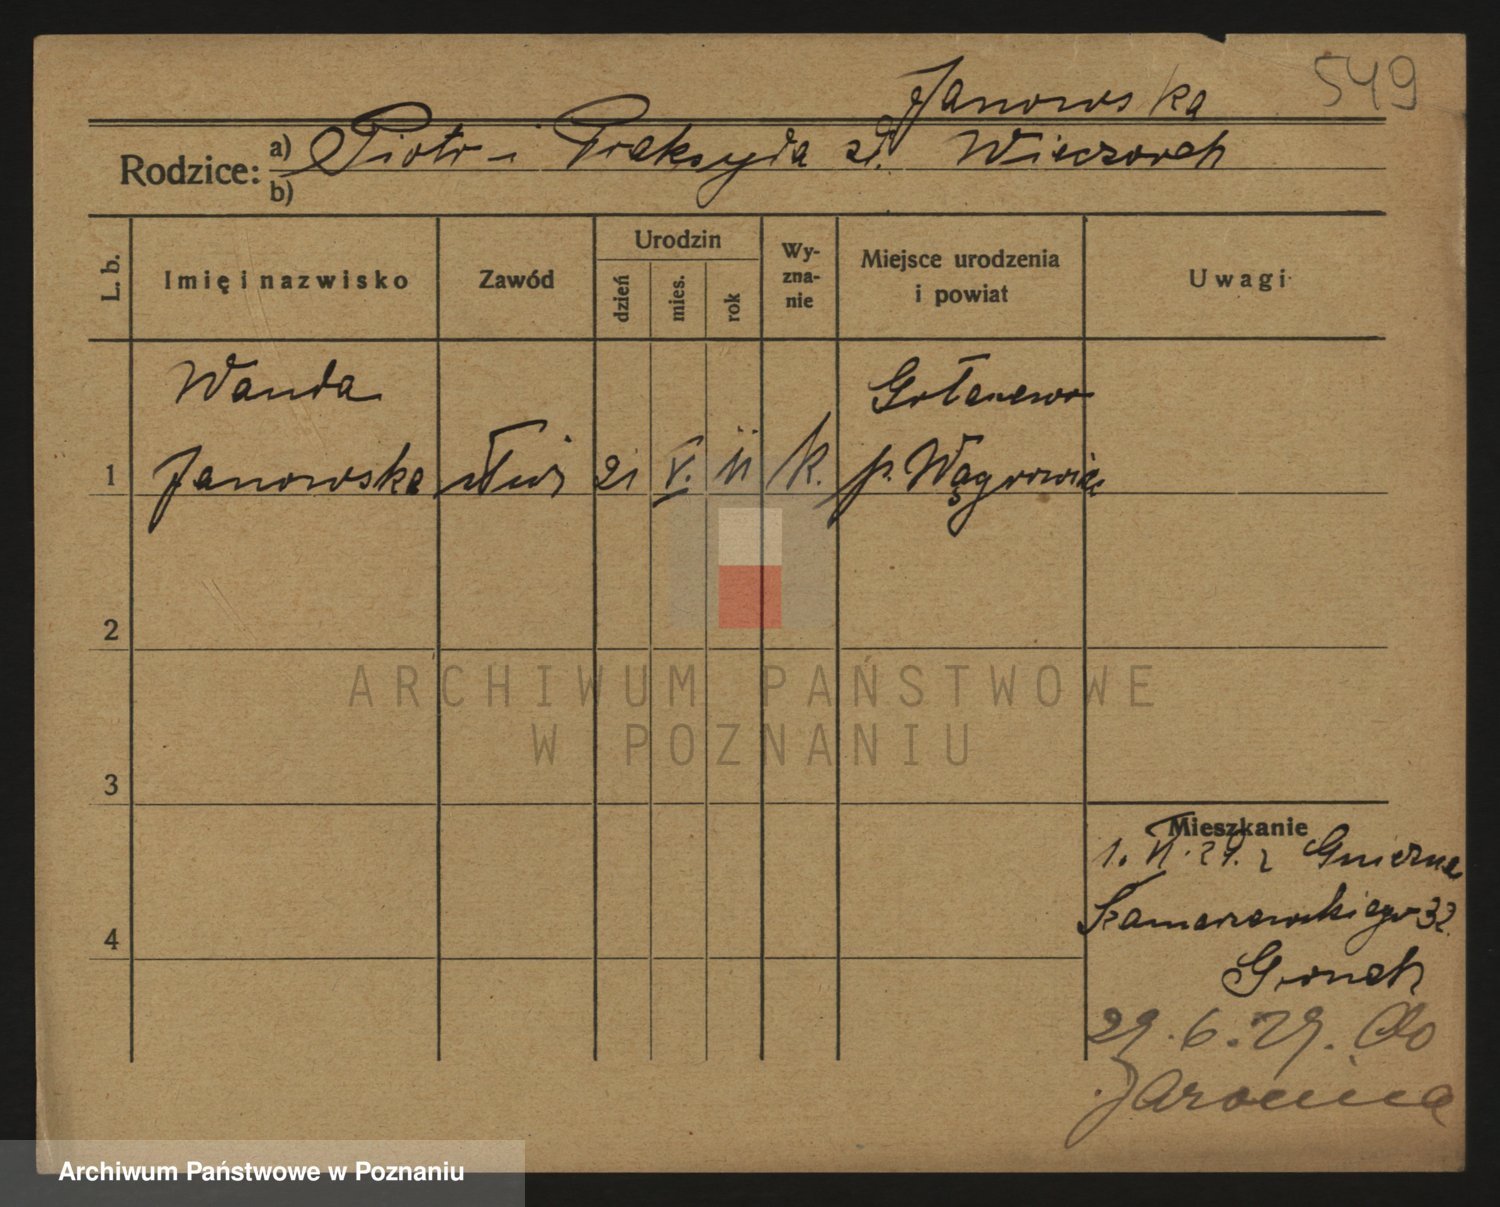 549
Janowska
Rodzice: a) Piotr i Praksyda zd. Wieczorek
b)
L. b. Imię i nazwisko Zawód Urodzin dzień mies. rok Wy-zna-nie Miejsce urodzenia i powiat Uwagi
Wanda Gołaszewo
1 Janowska służ 21 V. 11 k. p. Wągrowiec
2
ARCHIWUM PAŃSTWOWE
W POZNANIU
3
Mieszkanie
1. VI. 29. z Gniezna
4 Szamarzewskiego 32.
29.6.29. do
Jarocina
Archiwum Państwowe w Poznaniu